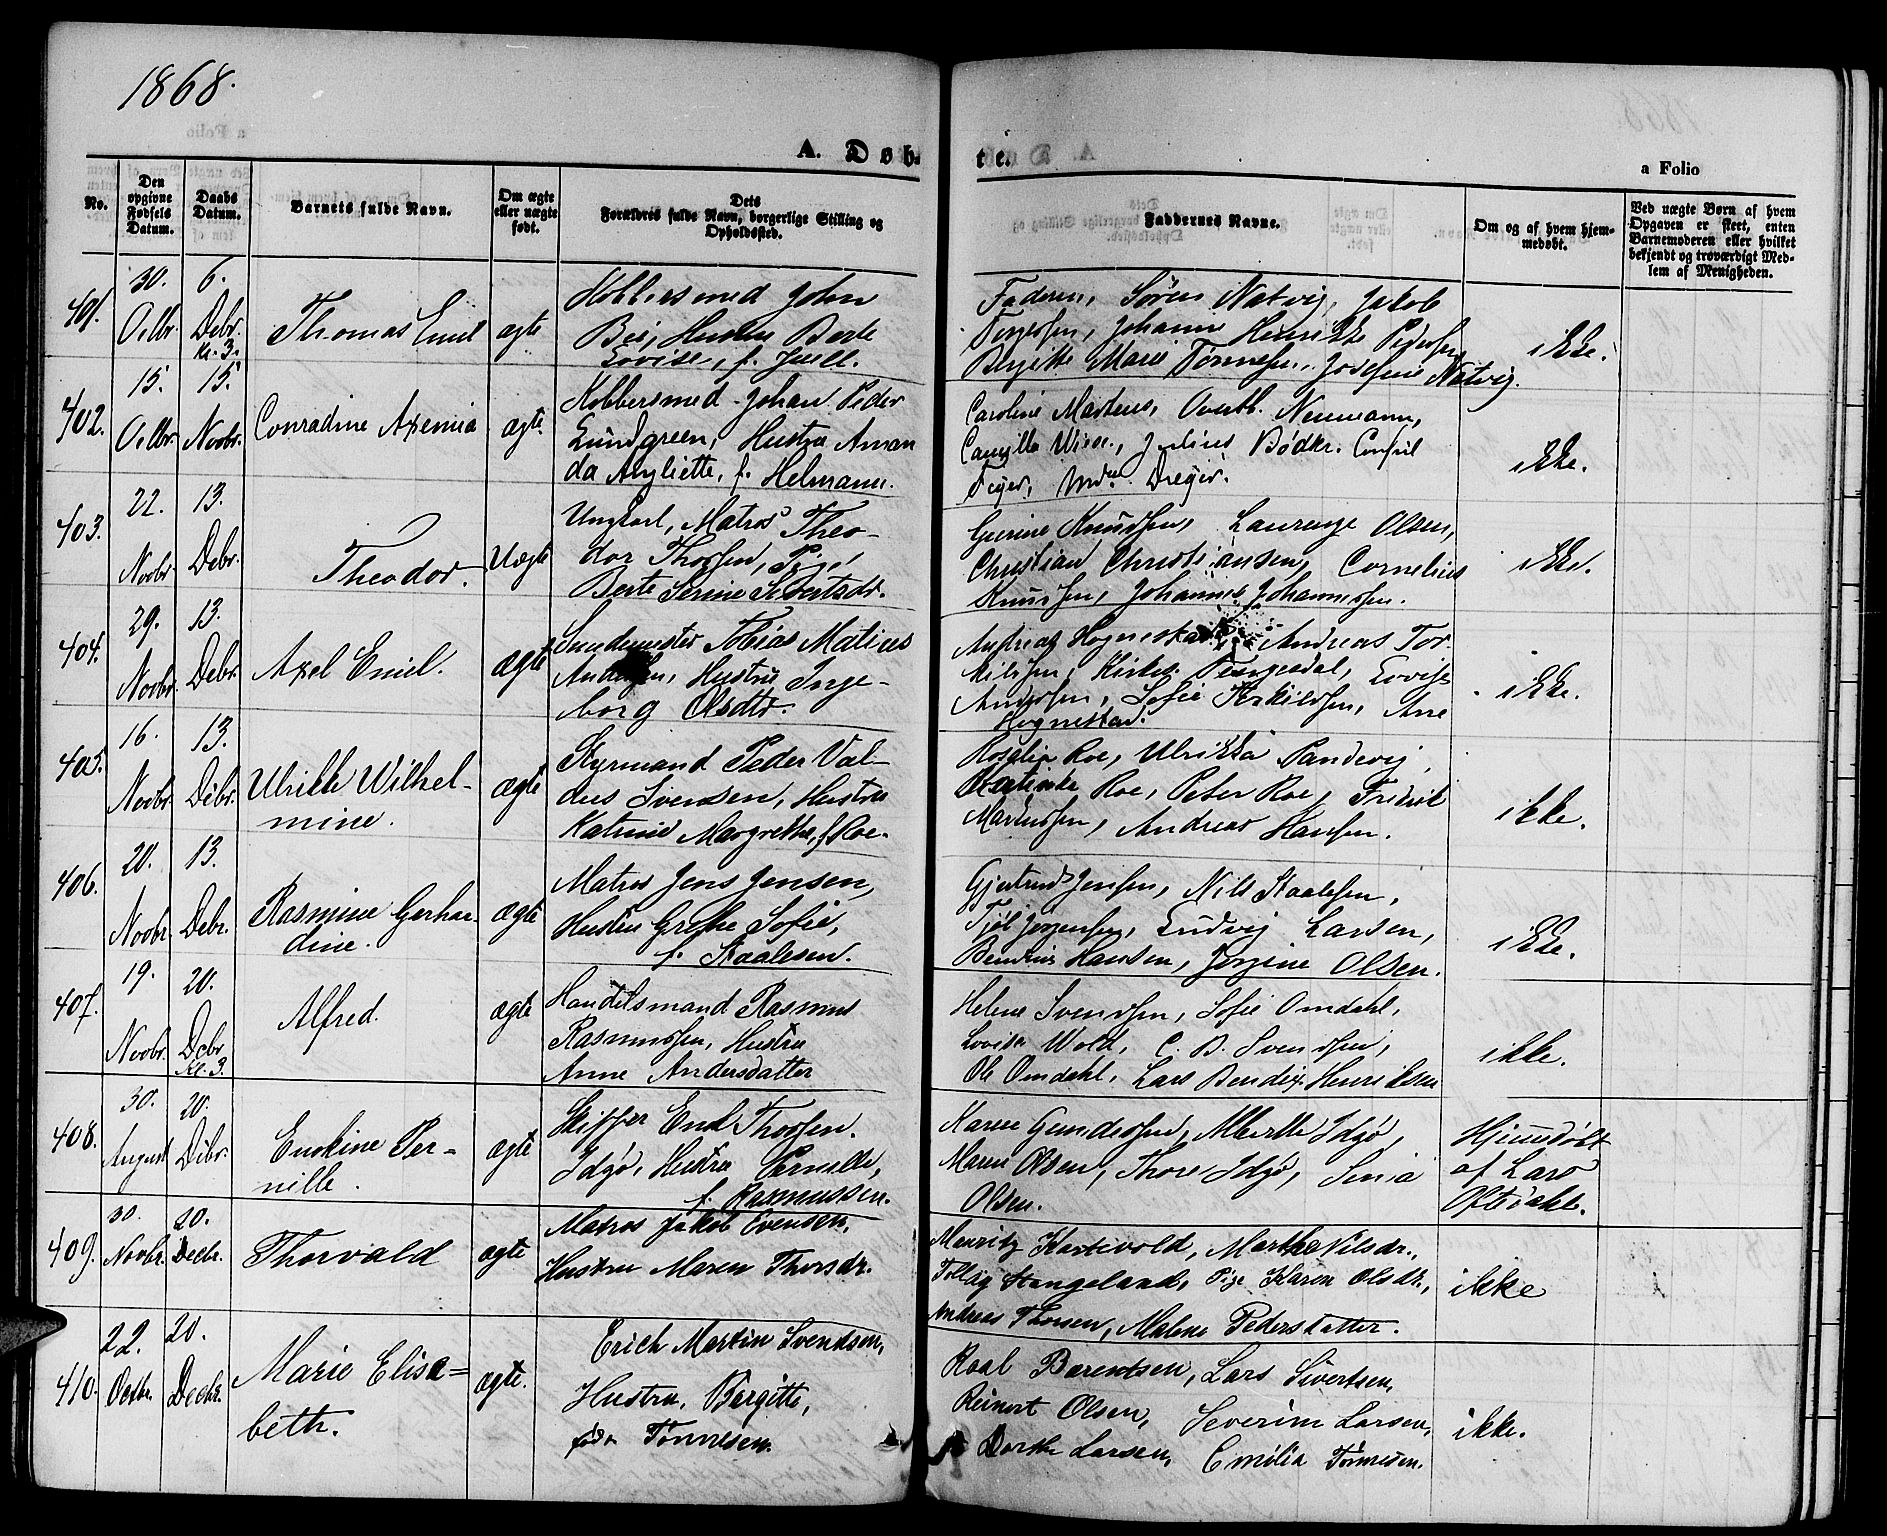 1868.
A. Døb-
te.
a Folio
No.
Den opgivne Fødsels Datum.
Daabs Datum.
Barnets fulde Navn.
Om ægte eller uægte født.
Dets Forældres fulde Navn, borgerlige Stilling og Opholdssted.
Faddernes Navne.
Om og af hvem hjemmedøbt.
Ved uægte Børn af hvem Opgaven er skeet, enten Barnemoderen eller hvilket bekjendt og troværdigt Medlem af Menigheden.
401.
30. Octbr.
6. Debr. Kl. 3.
Thomas Emil
ægte
Kobbersmed John
Bei, Hustru Berte
Lovise, f. Juell.
Faderen, Søren Natvig, Jakob
Tergersen, Johanne Henrikke Pedersen
Bergitte Marie Tønnesen, Josefine Natvig.
ikke.
402.
15. Octbr.
15. Novbr.
Conradine Axemia
ægte.
Kobbersmed Johan Peder
Lundgreen, Hustru Aman
da Angliette, f. Helmann.
Caroline Martens, Neumann,
Camilla Julius Bødkr. Consul
Dreyer.
ikke.
403.
22. Novbr.
13. Debr.
Theodor.
Uægte
Ungkarl, Matros Theo-
dor Thorsen, Pige,
Berte Serine Sivertsdr.
Gurine Knudsen, Laurenze Olsen,
Christian Christiansen, Cornelius
Knudsen, Johannes Johannesen.
ikke.
404.
29. Novbr.
13. Debr.
Axel Emil.
ægte
Tobias Matines
Andersen, Hustru Inge-
borg Olsdtr.
Andreas Hognestad, Andreas Tor
kilsen, Tengesdal, Lovise
Andersen, Sofie Torkildsen, Ane
Hognestad.
ikke.
405.
16. Novbr.
13. Debr.
Ulrikke Wilhel-
mine.
ægte
Styrmand Peder Val-
dus Svensen, Hustru
Katrine Margrethe, f. Roe.
Rosalia Roe, Ulrikka Sandvig,
Roe, Peter Roe, Fredrik
Martinsen, Andreas Hansen.
ikke.
406.
20. Novbr.
13. Debr.
Rasmine Gerhar-
dine.
ægte
Matros Jens Jensen,
Hustru Grethe Sofie,
f. Staalesen.
Gjertrud Jensen, Nils Staalesen,
Jørgensen, Ludvig Larsen,
Hansen, Jørgine Olsen.
ikke.
407.
19. Novbr.
20. Debr. Kl. 3.
Alfred.
ægte
Handelsmand Rasmus
Rasmussen, Hustru
Anne Andersdatter
Helene Svendsen, Sofie Omdahl,
Lovise Wold, C. B. Svendsen,
Ole Omdahl, Lars Bendix Henriksen
ikke.
408.
30. August
20. Debr.
Enokine Per-
nille.
ægte
Skipper Enok Thorsen.
Idsø, Hustru Pernille,
f. Rasmussen.
Karen Gundersen, Idsø,
Maren Olsen, Thore Idsø, Senia
Olsen.
Hjemdøbt
af Lars
Oftedahl.
409.
30. Novbr.
20. Decbr.
Thorvald
ægte
Matros Jakob Evensen,
Hustru Maren Thorsdr.
Mauritz Kartevold, Marthe Nilsdr.,
Tollag Stangeland, Pige Karen Olsdr.,
Andreas Thorsen, Malene Pedersdatter.
ikke
410.
22. Octbr.
20. Decbr.
Marie Elisa=
beth.
ægte.
Erich Martin Svendsen,
Hustru, Bergitte,
født Tønnesen.
Roal Barentsen, Lars Sivertsen,
Reinert Olsen, Severine Larsen,
Dorthe Larsen, Emilia Tønnesen.
ikke.